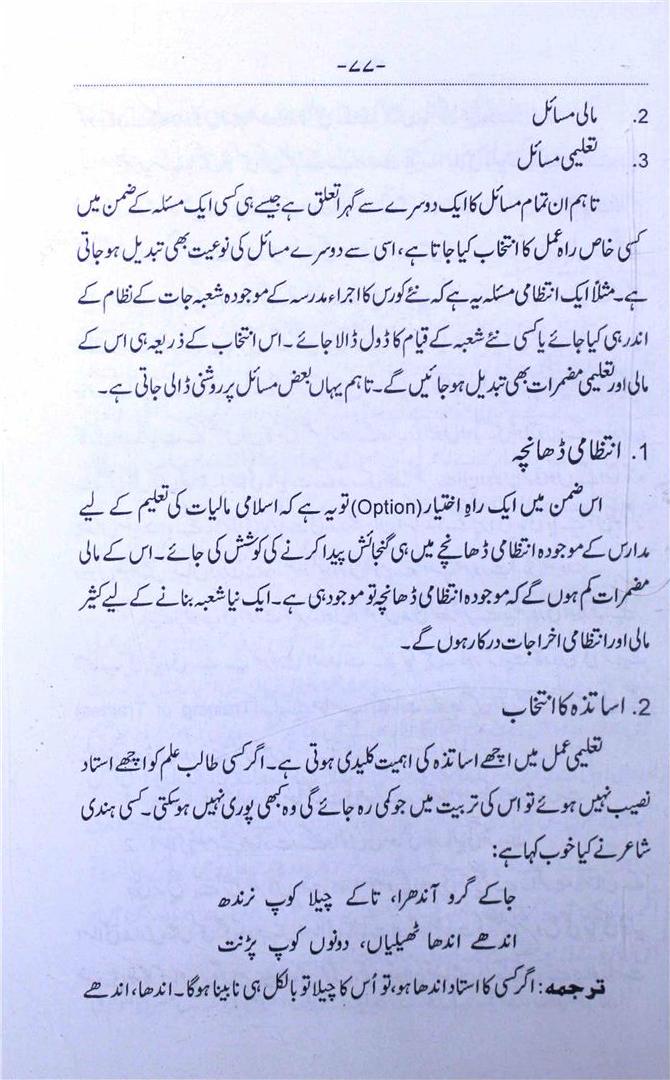 -۷۷-
2. مالی مسائل
3. تعلیمی مسائل
تاہم ان تمام مسائل کا ایک دوسرے سے گہرا تعلق ہے جیسے ہی کسی ایک مسئلہ کے ضمن میں
کسی خاص راہ عمل کا انتخاب کیا جاتا ہے، اسی سے دوسرے مسائل کی نوعیت بھی تبدیل ہو جاتی
ہے۔ مثلاً ایک انتظامی مسئلہ یہ ہے کہ نئے کورس کا اجراء مدرسہ کے موجودہ شعبہ جات کے نظام کے
اندر ہی کیا جائے یا کسی نئے شعبہ کے قیام کا ڈول ڈالا جائے۔ اس انتخاب کے ذریعہ ہی اس کے
مالی اور تعلیمی مضمرات بھی تبدیل ہو جائیں گے۔ تاہم یہاں بعض مسائل پر روشنی ڈالی جاتی ہے۔
1. انتظامی ڈھانچہ
اس ضمن میں ایک راہِ اختیار (Option) تو یہ ہے کہ اسلامی مالیات کی تعلیم کے لیے
مدارس کے موجودہ انتظامی ڈھانچے میں ہی گنجائش پیدا کرنے کی کوشش کی جائے۔ اس کے مالی
مضمرات کم ہوں گے کہ موجودہ انتظامی ڈھانچہ تو موجود ہی ہے۔ ایک نیا شعبہ بنانے کے لیے کثیر
مالی اور انتظامی اخراجات درکار ہوں گے۔
2. اساتذہ کا انتخاب
تعلیمی عمل میں اچھے اساتذہ کی اہمیت کلیدی ہوتی ہے۔ اگر کسی طالب علم کو اچھے استاد
نصیب نہیں ہوئے تو اس کی تربیت میں جو کمی رہ جائے گی وہ کبھی پوری نہیں ہو سکتی۔ کسی ہندی
شاعر نے کیا خوب کہا ہے:
جا کے گرو آندھرا، تا کے چیلا کوپ نرندھ
اندھے اندھا ٹھیلیاں، دونوں کوپ پڑنت
ترجمہ: اگر کسی کا استاد اندھا ہو، تو اُس کا چیلا تو بالکل ہی نابینا ہوگا۔ اندھا، اندھے